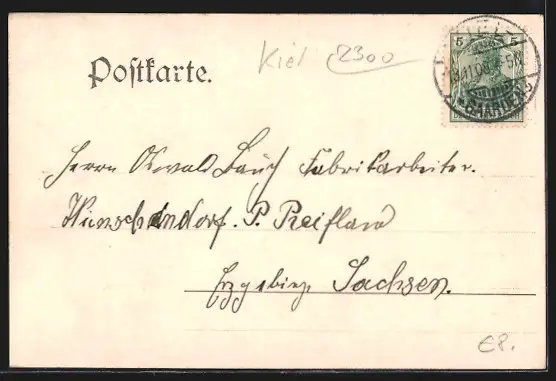 Postkarte.
Kiel 2300
5 5
KIEL
GAARDEN
Herrn Oswald Fabrikarbeiter.
Wünschendorf. P. Reifland
Erzgebirge Sachsen.
E8.